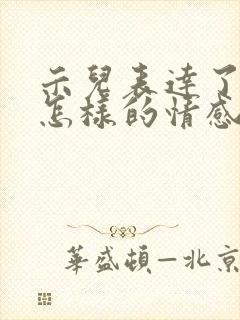 示兒表達了
怎樣的情感
華盛頓—北京